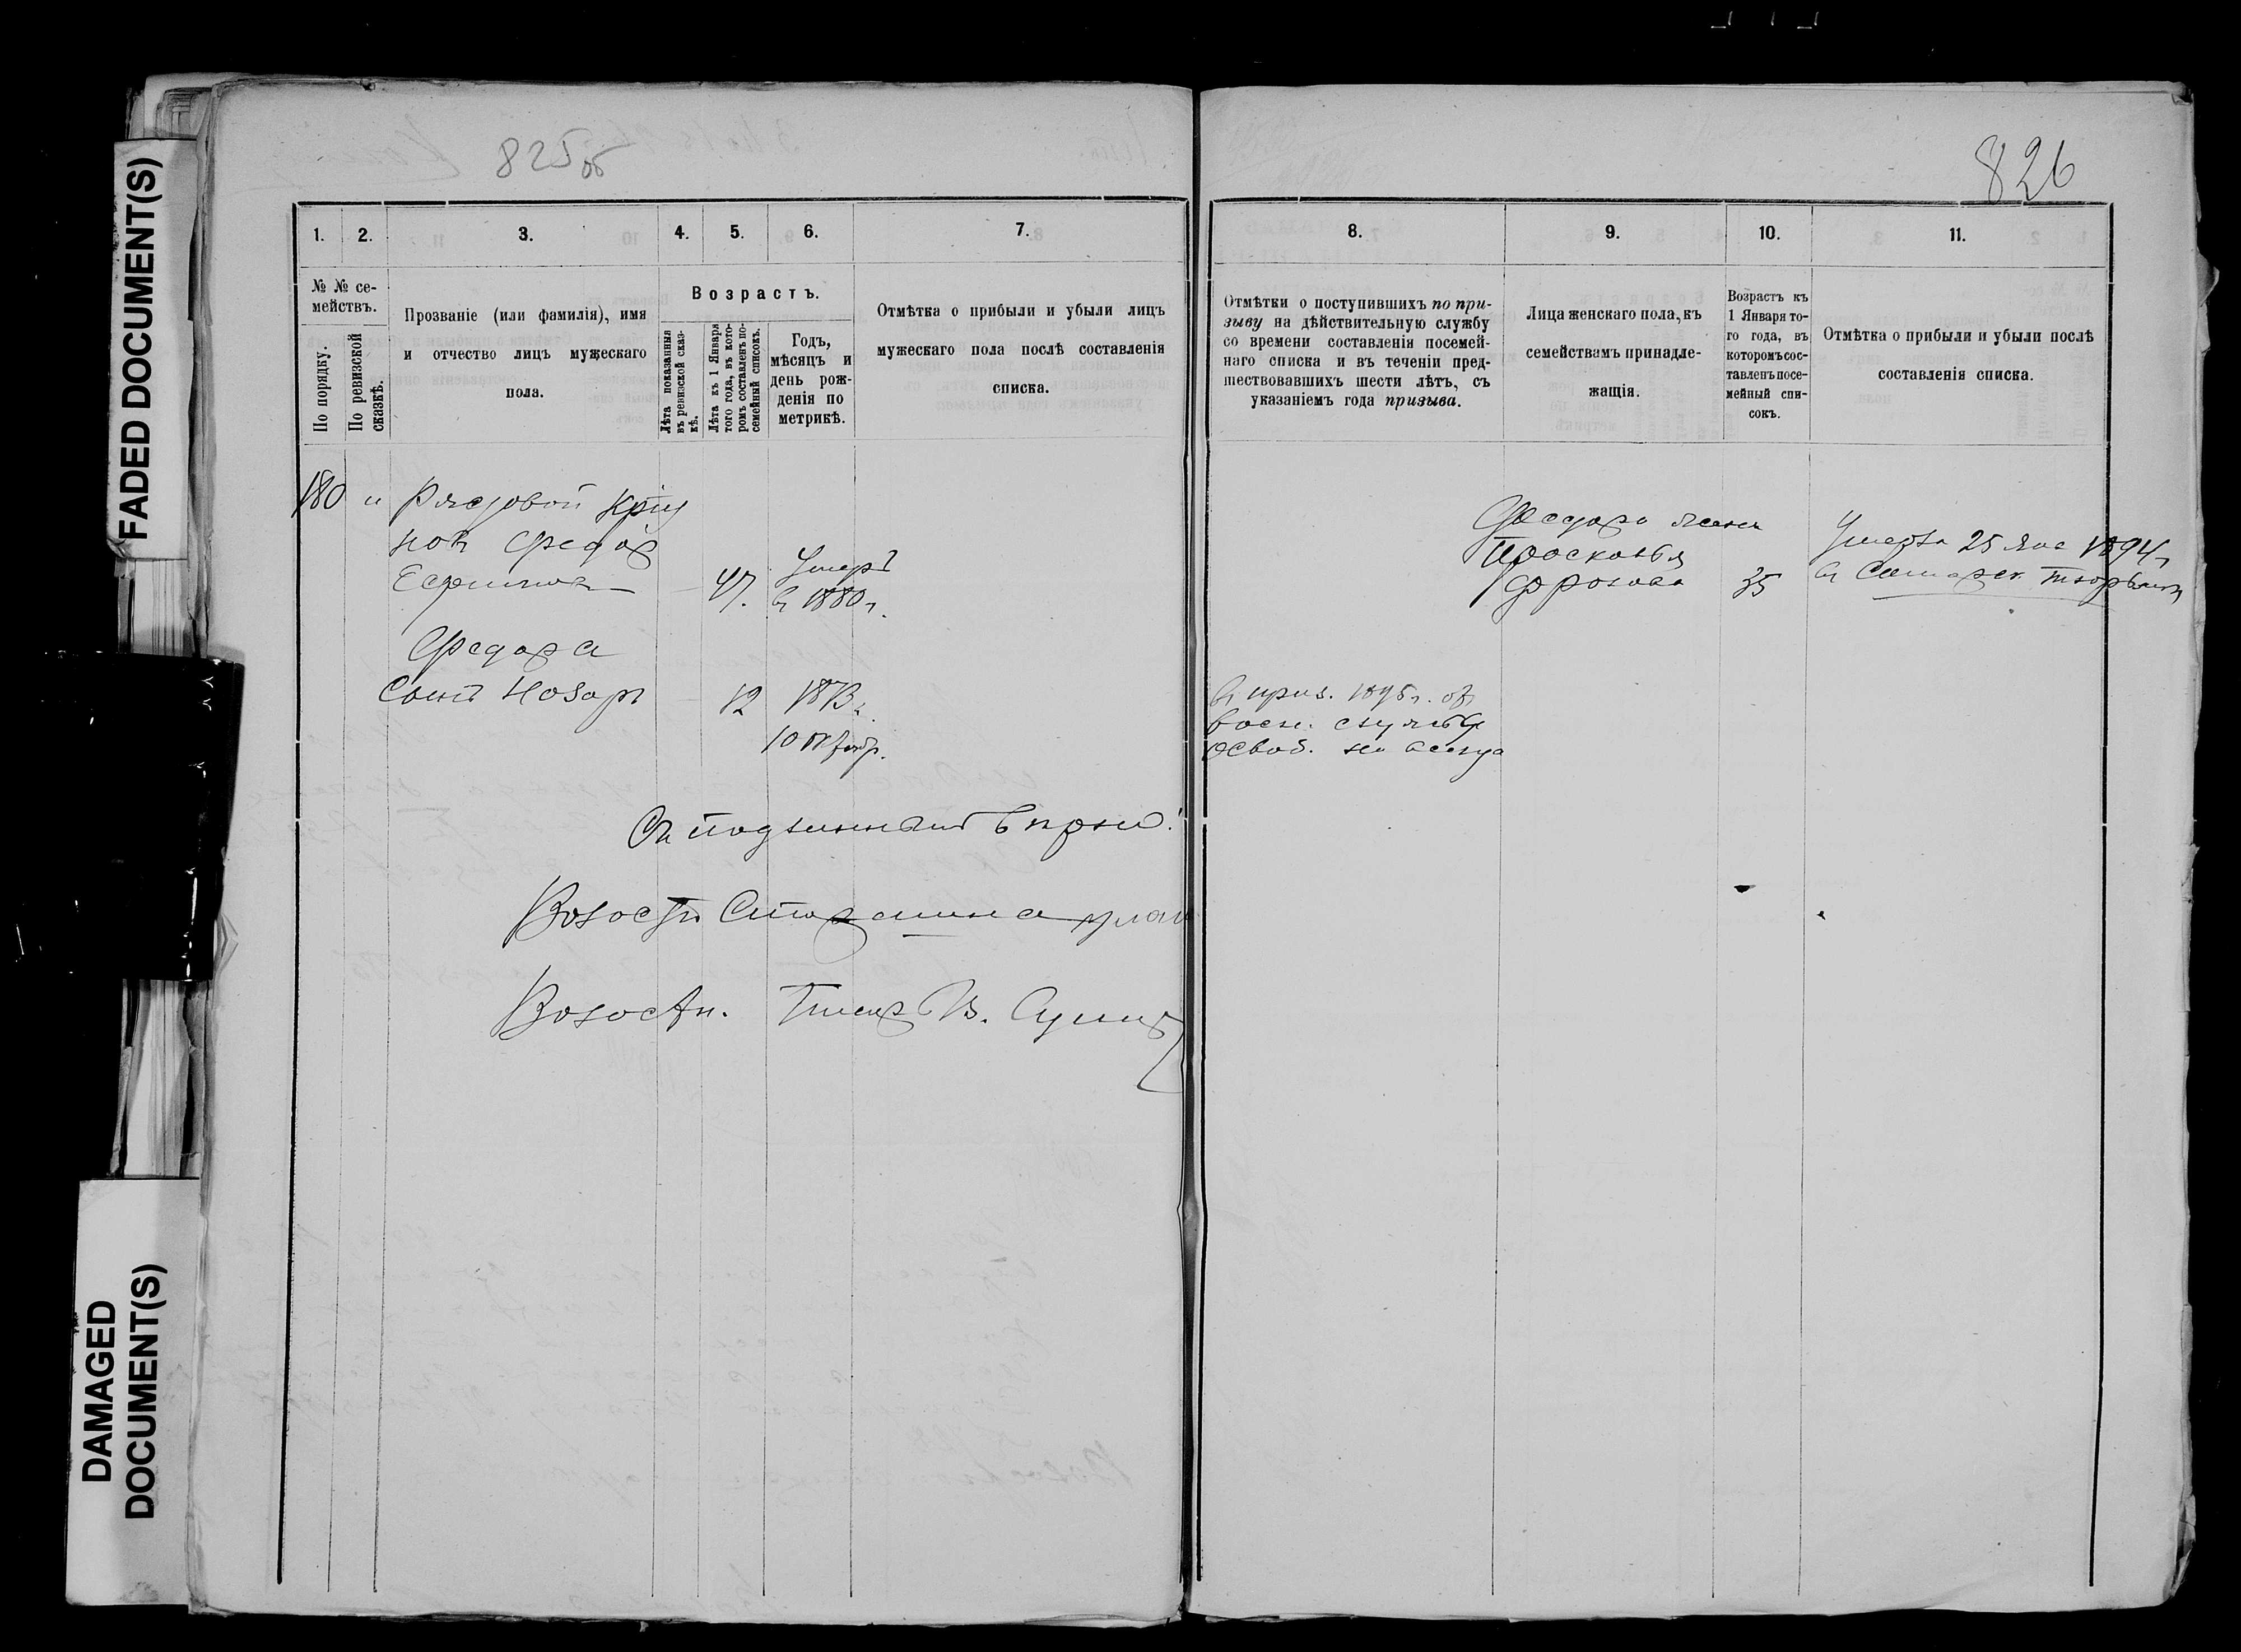 FADED DOCUMENT(S)
DAMAGED
DOCUMENT(S)
825об
1.
2.
3.
4.
5.
6.
7.
№ № се-
мействъ.
По порядку.
По ревизской
сказкѣ.
Прозваніе (или фамилія), имя
и отчество лицъ мужескаго
пола.
Возрастъ.
Лѣта показанныя
въ ревизской сказ-
кѣ.
Лѣта къ 1 Января
того года, въ кото-
ромъ составленъ по-
семейный списокъ.
Годъ,
мѣсяцъ и
день рож-
денія по
метрикѣ.
Отмѣтка о прибыли и убыли лицъ
мужескаго пола послѣ составленія
списка.
180 "
Рядовой
Федор
47.
Умеръ
въ 1880г.
Федора
Сынъ Назаръ
12
1873г.
10 Октябр.
Съ подлиннымъ вѣрно:
Волостн. Старшина
Волостн. Писарь
826
8.
9.
10.
11.
Отмѣтки о поступившихъ по при-
зыву на дѣйствительную службу
со времени составленія посемей-
наго списка и въ теченіи пред-
шествовавшихъ шести лѣтъ, съ
указаніемъ года призыва.
Лица женскаго пола, къ
семействамъ принадле-
жащія.
Возрастъ къ
1 Января то-
го года, въ
которомъ сос-
тавленъ посе-
мейный спи-
сокъ.
Отмѣтка о прибыли и убыли послѣ
составленія списка.
Федора жена
Просковья
35
Умерла 25 1894г.
въ
въ приз. 1895г. отъ
воен. службы
освоб. на всегда